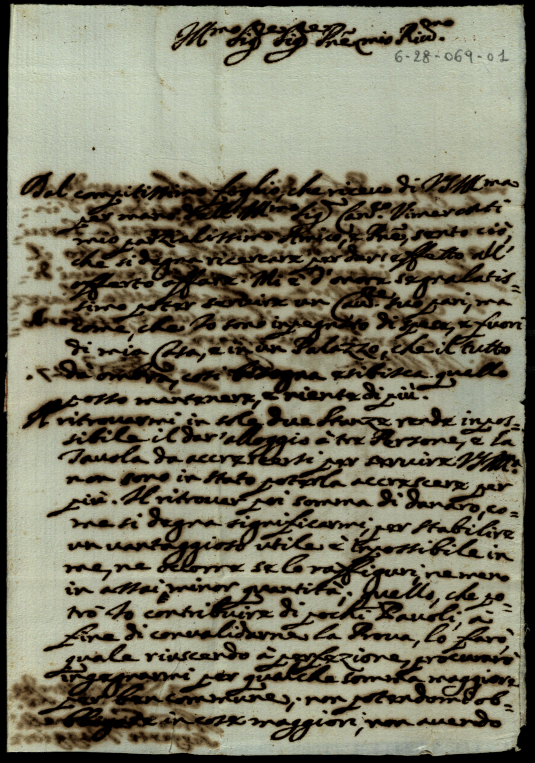 Ill.mo Sig.r Sig.r Pne mio
6-28-069-01
Dal compitissimo foglio, che ricevo di VS Ill.ma
per mano dell'Ill.mo Sig. Cav.re Vimercati
mio parzialissimo Amico, e Pne, sento ciò,
che si degna ricercare per dar' effetto all'
offerto affare. Mi è d'onore segnalatis=
simo poter servire un Cav.re suo pari, ma
come, che Io sono impegnato di spese, e fuori
di mia Casa, è in un Palazzo, che il tutto
dà ombra, così bisogna esibisca quello
posso mantenere, e niente di più.
Il ritrovarmi in sole due Stanze rende impos=
sibile il dar' alloggio à tre Persone, e la
Tavola da accrescersi per servire VS Ill.ma
non sono in stato poterla accrescere per
più. Il ritrovar poi somma di danaro, co=
me si degna significarmi, per stabilire
un vantaggioso utile è impossibile in
me, ne occorre se lo raffiguri, ne meno
in assai minor quantità; Quello, che po=
trò Io contribuire di pochi Pauoli, à
fine di convalidarne la Prova, lo farò,
quale riuscendo à perfezione, procurarò
ingegnarmi per qualche somma maggiore
per ben comune, non potendomi ob=
bligare in cose maggiori, non avendo